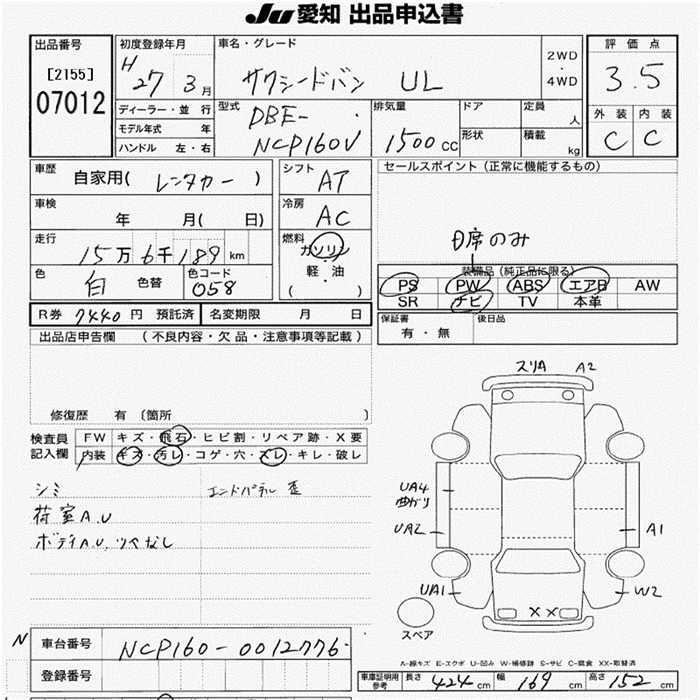 JU 愛知 出品申込書
出品番号
[2155]
07012
初度登録年月
H 27 3月
ディーラー・並行
モデル年式 年
ハンドル 左・右
車名・グレード
サクシードバン UL
2WD
・
4WD
型式
DBE-
NCP160V
排気量
1500 cc
ドア
形状
定員
人
積載
kg
評価点
3.5
外装 内装
C C
車歴
自家用( レンタカー )
車検
年 月( 日)
走行
15万 6千 189 km
色
白 色替
色コード
058
シフト
AT
冷房
AC
燃料
ガソリン
・
軽・油
( )
セールスポイント (正常に機能するもの)
D席のみ
装備品 (純正品に限る)
PS PW ABS エアB AW
SR ナビ TV 本革
保証書
有・無
後日品
R券 7440 円 預託済
名変期限 月 日
出品店申告欄 (不良内容・欠品・注意事項等記載)
修復歴 有 〔箇所 〕
検査員
記入欄
FW キズ・飛石・ヒビ割・リペア跡・X要
内装 キズ・汚レ・コゲ・穴・スレ・キレ・破レ
シミ
荷室A.U
ボディA.U,ツヘなし
エンドパネル 歪
スリA A2
UA4
曲がり
UA2
A1
UA1
W2
XX
スペア
A-線キズ E-エクボ U-凹み W-補修跡 S-サビ C-腐食 XX-取替済
N
車台番号
NCP160-0012776
登録番号
車庫証明用
参考
長さ 424 cm 幅 169 cm 高さ 152 cm